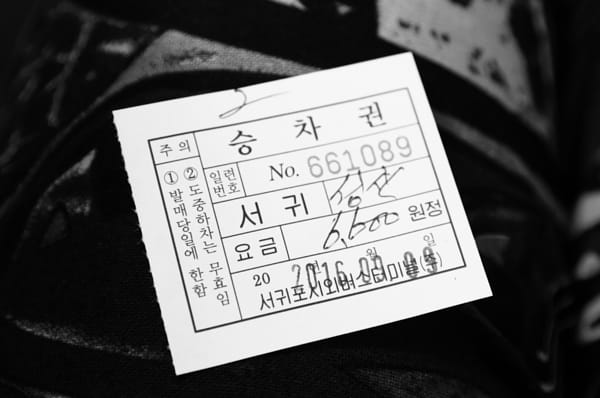 승차권
주의
① 발매당일에 한함
② 도중하차는 무효임
일련번호
No. 661089
서귀
성산
요금
6,600 원정
20 년 월 일
2016 09
서귀포시외버스터미널(주)